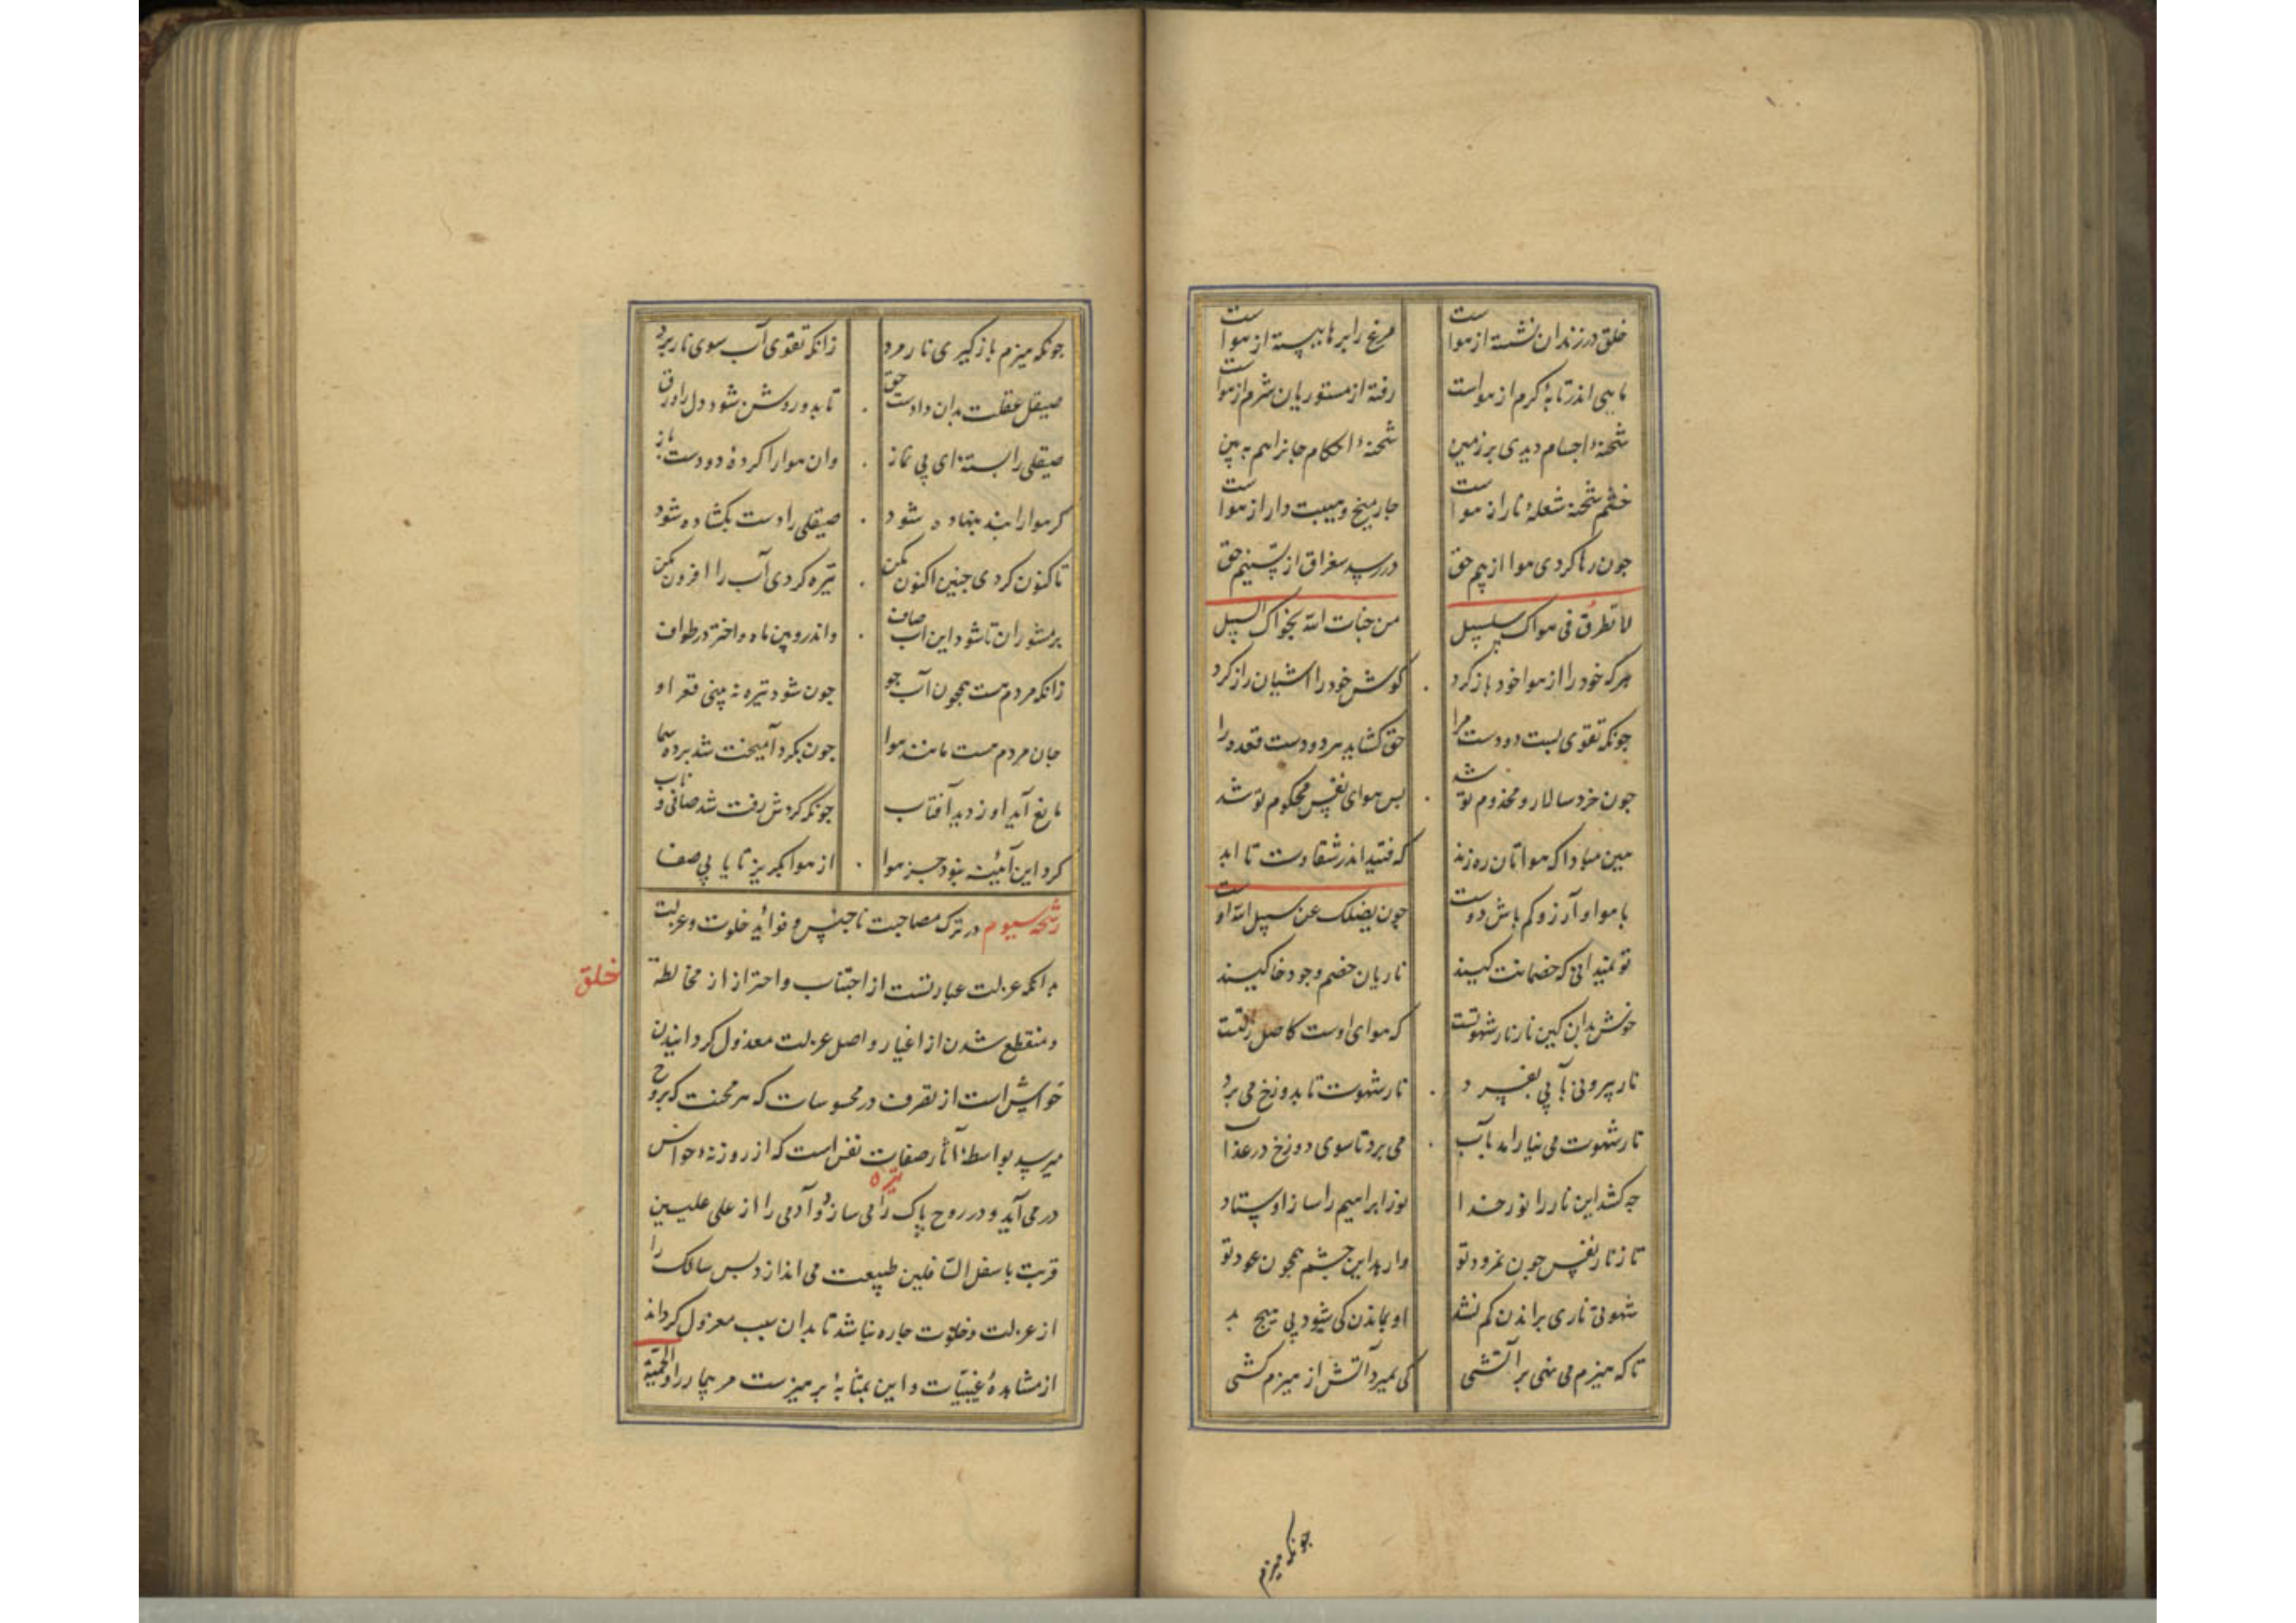 خلق در زندان نشسته از هواست مرغ را پرها ببسته از هواست
ماهی اندر تابهٔ گرم از هواست رفته از مستوریان شرم از هواست
شحنهٔ اجسام دیدی بر زمین شحنهٔ احکام جانرا هم ببین
خشم شحنه شعلهٔ نار از هواست چارمیخ و هیبت دار از هواست
چون رها کردی هوا از بیم حق در رسد سغراق از تسنیم حق
لا تطرق فی هواک سلسبیل من جنات الله نحواک السبیل
هرکه خود را از هوا خود باز کرد کوش خود را آشیان راز کرد
جونکه تقوی بست دو دست مرا حق کشاید هر دو دست عقده را
جون خرد سالار و مخدوم تو شد بس هوای نفس محکوم تو شد
هین مبادا که هواتان ره زند که فتید اندر شقاوت تا ابد
با هوا و آرزو کم باش دوست چون یضلک عن سبیل الله اوست
تو نمیدانی که خصمانت کیند ناریان خصم وجود خاکیند
خوش بدان کین نار نار شهوتست که هوای اوست کاصل زلتست
نار بیرونی بآبی بفسرد نار شهوت تا بدوزخ می برد
نار شهوت می نیارامد بآب می برد تا سوی دوزخ در عذاب
جه کشد این نار را نور خدا نور ابراهیم را ساز اوستاد
تا ز نار نفس جون نمرود تو وارهد این جشم همجون عود تو
شهوتی ناری براندن کم نشد او بماندن کی شود بی هیچ بد
تا که هیزم می نهی بر آتشی کی بمیرد آتش از هیزم کشی
جونکه هیزم
جونکه هیزم بازکیری نار مرد زانکه تقوی آب سوی نار برد
صیقل عقلت بدان دادست حق تا بدو روشن شود دل را ورق
صیقلی را بستهٔ ای بی نماز وان هوا را کردهٔ دو دست باز
کر هوا را بند بنهاده شود صیقلی را دست بکشاده شود
تا کنون کردی جنین اکنون مکن تیره کردی آب را افزون مکن
بر مشوران تا شود این آب صاف واندرو بین ماه و اختر در طواف
زانکه مردم هست همجون آب جو جون شود تیره نه بینی قعر او
جان مردم هست مانند هوا جون بکرد آمیخت شد برده سما
مانع آید او ز دید آفتاب جونکه کردش رفت شد صافی و ناب
کرد این آئینه نبود جز هوا از هوا بکریز تا یابی صفا
رشحه سیوم در ترک مصاحبت ناجنس و فواید خلوت و عزلت
بدانکه عزلت عبارتست از اجتناب و احتراز از مخالطة خلق
و منقطع شدن از اغیار و اصل عزلت معذول کردانیدن
خواس است از تصرف در محسوسات که هر محنت که بروح
میرسد بواسطهٔ آثار صفات نفس است که از روزنهٔ حواس
در می آید و در روح پاک را تیره می سازد و آدمی را از علی علیین
قربت باسفل السافلین طبیعت می اندازد بس سالک را
از عزلت و خلوت جاره نباشد تا بدان سبب معزول کرداند
از مشاهدهٔ غیبیات و این بمثابهٔ برهیزست مر بیمار را و الحمیة